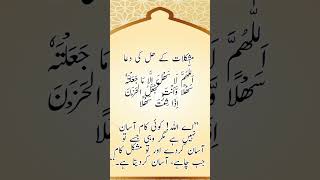 مشکلات کے حل کی دعا
اَللّٰهُمَّ لَا سَهْلَ اِلَّا مَا جَعَلْتَهٗ
سَهْلًا وَّاَنْتَ تَجْعَلُ الْحَزْنَ
اِذَا شِئْتَ سَهْلًا
"اے اللہ! کوئی کام آسان
نہیں ہے مگر وہی جسے تو
آسان کردے اور تو مشکل کام
جب چاہے، آسان کردیتا ہے۔"